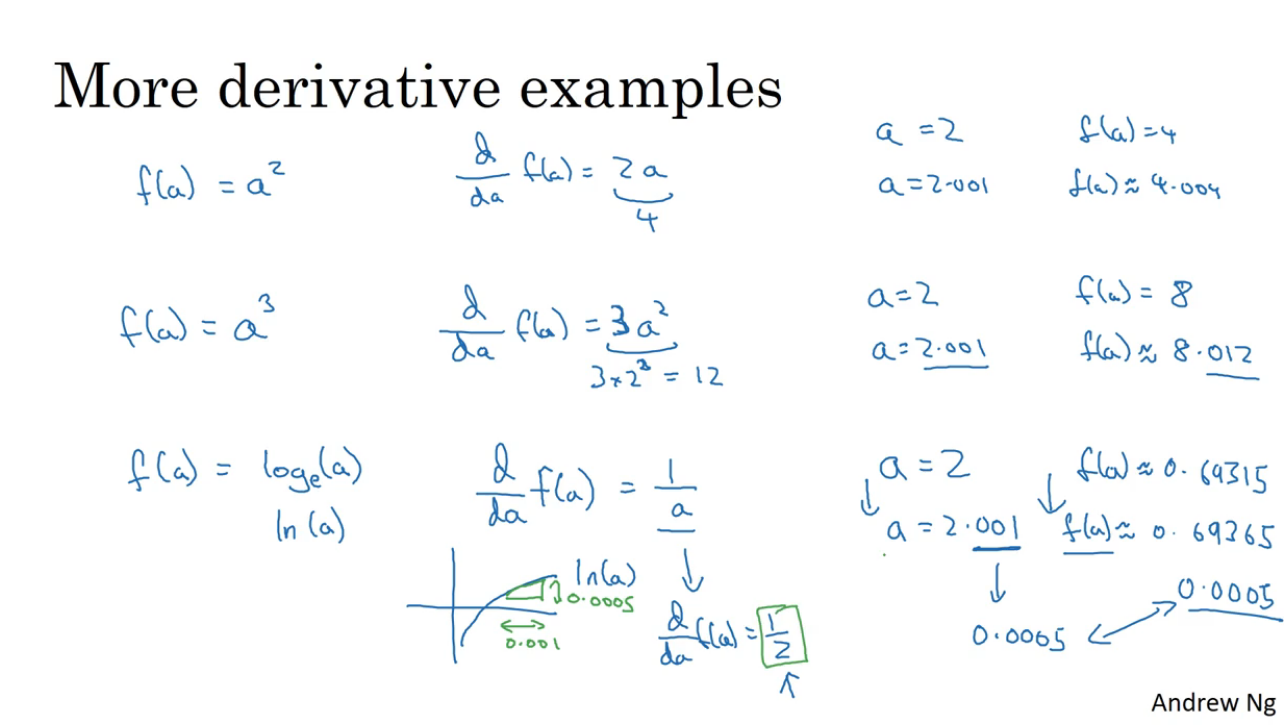 More derivative examples
f(a) = a²
d/da f(a) = 2a
4
a = 2 f(a) = 4
a = 2.001 f(a) ≈ 4.004
f(a) = a³
d/da f(a) = 3a²
3×2³ = 12
a = 2 f(a) = 8
a = 2.001 f(a) ≈ 8.012
f(a) = logₑ(a)
ln(a)
d/da f(a) = 1/a
d/da f(a) = 1/2
ln(a)
0.0005
0.001
a = 2 f(a) ≈ 0.69315
a = 2.001 f(a) ≈ 0.69365
0.0005
0.0005
Andrew Ng